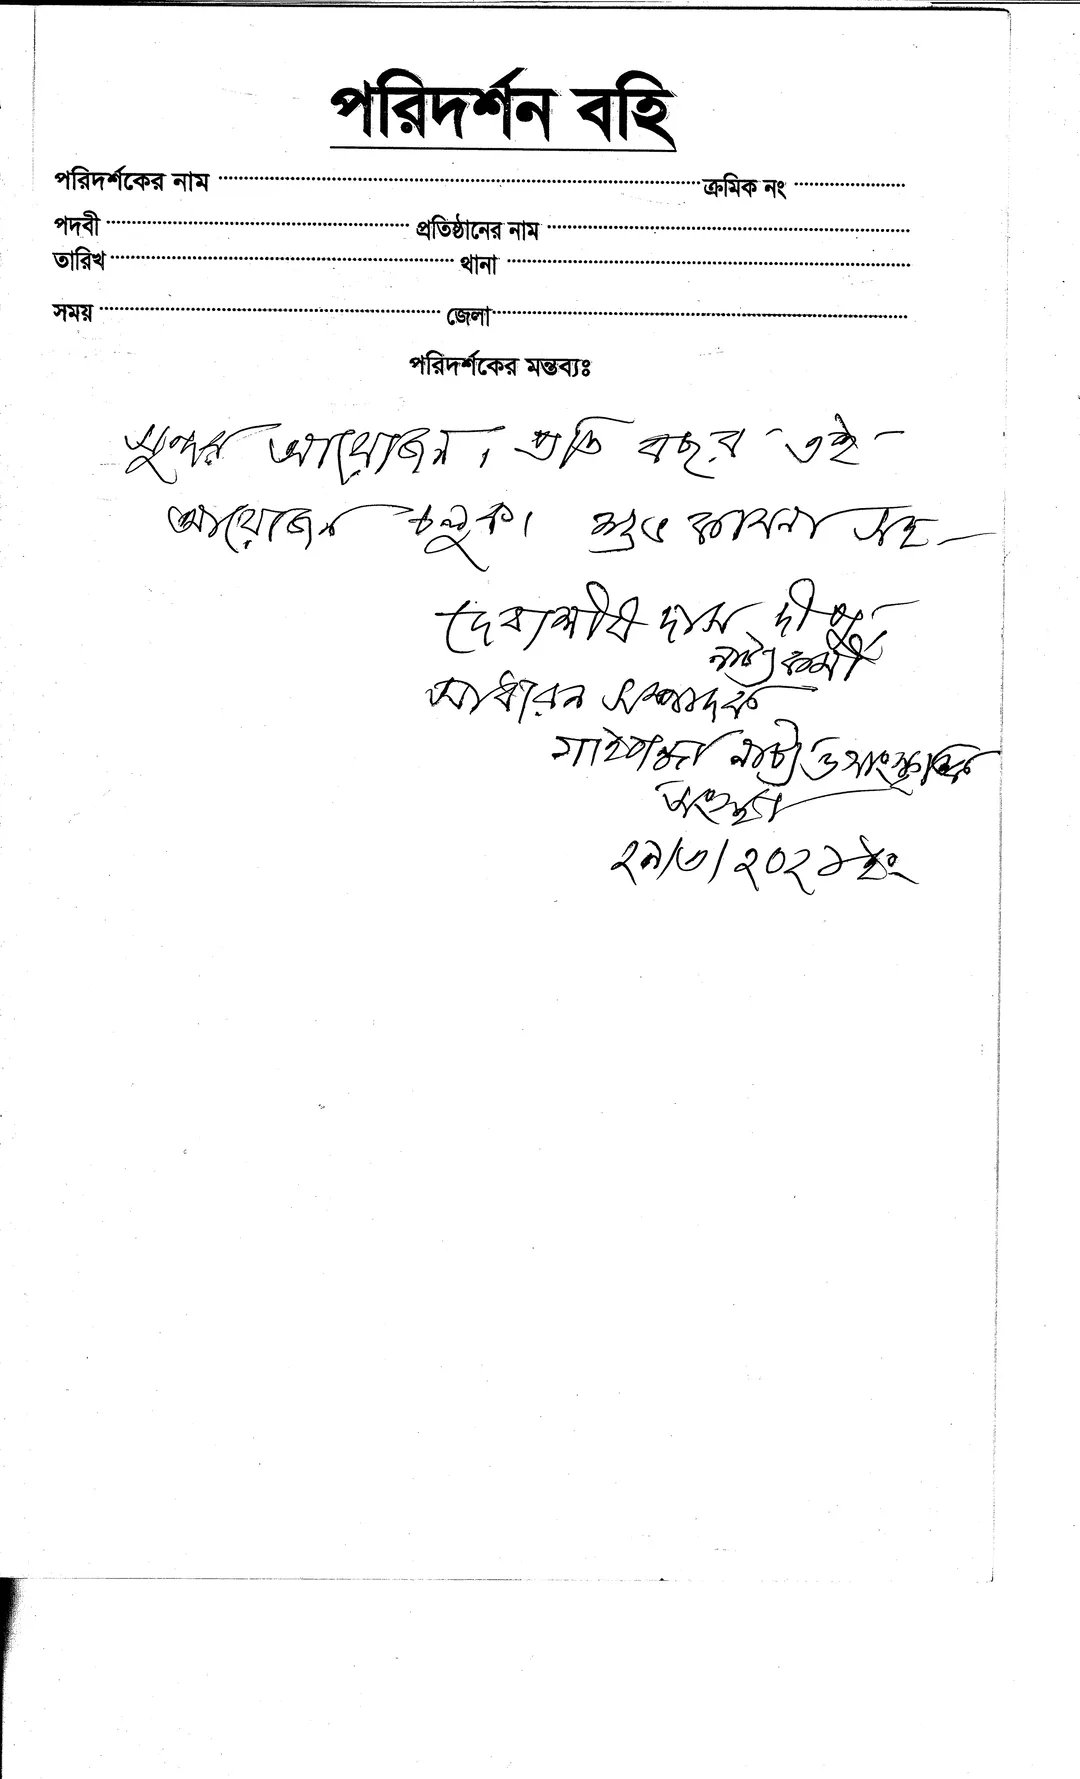 পরিদর্শন বহি
পরিদর্শকের নাম ক্রমিক নং
পদবী প্রতিষ্ঠানের নাম
তারিখ থানা
সময় জেলা
পরিদর্শকের মন্তব্যঃ
সুন্দর আয়োজন। প্রতি বছর এই
আয়োজন চলুক। শুভ কামনা সহ
দেবাশীষ দাস দীপু
নাট্যকর্মী
সাধারন সম্পাদক
গাইবান্ধা নাট্য ও সাংস্কৃতিক
সংস্থা
২৯/৩/২০২১ইং